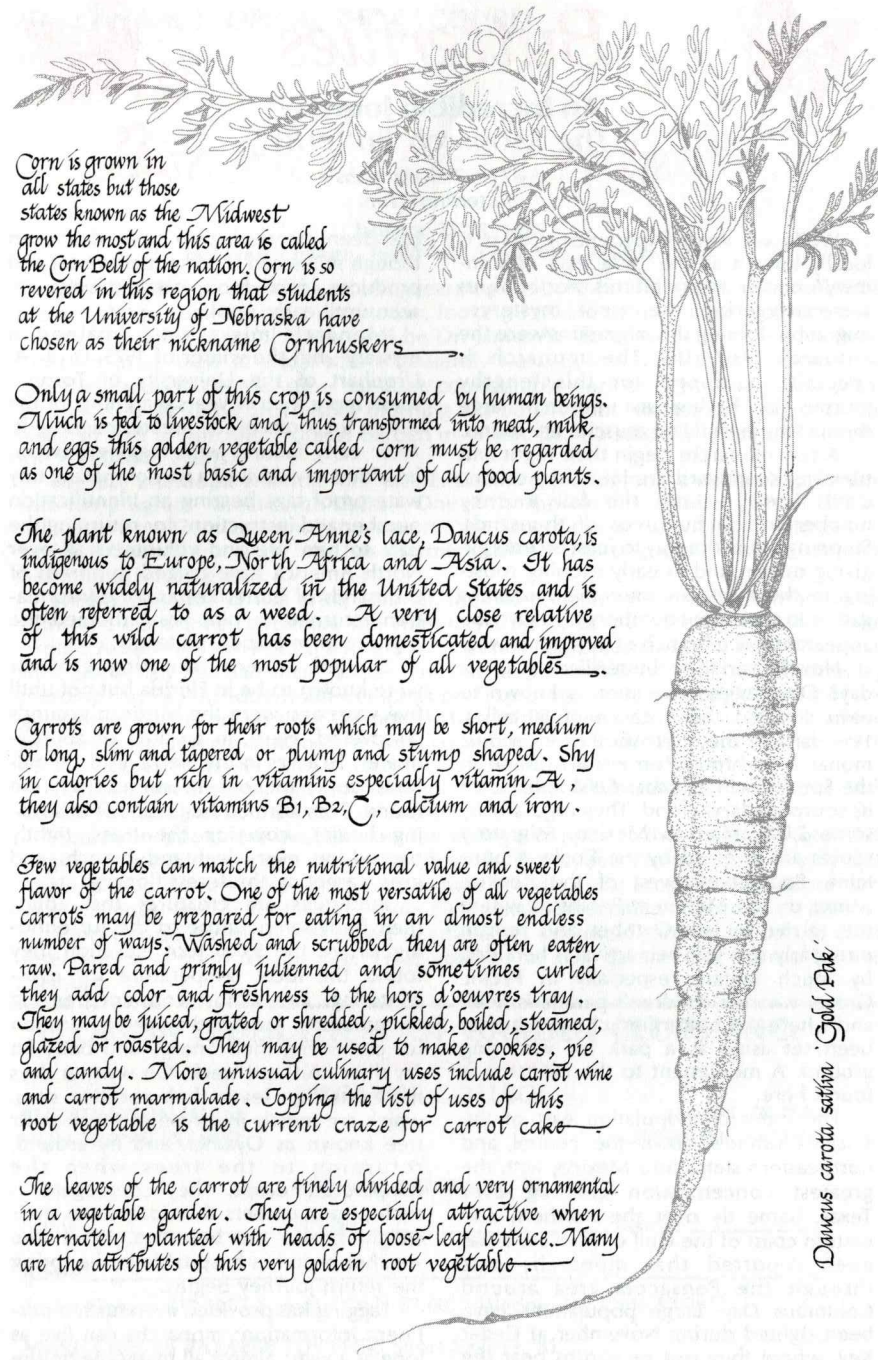 Corn is grown in
all states but those
states known as the Midwest
grow the most and this area is called
the Corn Belt of the nation. Corn is so
revered in this region that students
at the University of Nebraska have
chosen as their nickname Cornhuskers.
Only a small part of this crop is consumed by human beings.
Much is fed to livestock and thus transformed into meat, milk
and eggs this golden vegetable called corn must be regarded
as one of the most basic and important of all food plants.
The plant known as Queen Anne's lace, Daucus carota, is
indigenous to Europe, North Africa and Asia. It has
become widely naturalized in the United States and is
often referred to as a weed. A very close relative
of this wild carrot has been domesticated and improved
and is now one of the most popular of all vegetables.
Carrots are grown for their roots which may be short, medium
or long, slim and tapered or plump and stump shaped. Shy
in calories but rich in vitamins especially vitamin A.
they also contain vitamins B1, B2, C, calcium and iron.
Few vegetables can match the nutritional value and sweet
flavor of the carrot. One of the most versatile of all vegetables
carrots may be prepared for eating in an almost endless
number of ways. Washed and scrubbed they are often eaten
raw. Pared and primly julienned and sometimes curled
they add color and freshness to the hors d'oeuvres tray.
They may be juiced, grated or shredded, pickled, boiled, steamed,
glazed or roasted. They may be used to make cookies, pie
and candy. More unusual culinary uses include carrot wine
and carrot marmalade. Topping the list of uses of this
root vegetable is the current craze for carrot cake.
The leaves of the carrot are finely divided and very ornamental
in a vegetable garden. They are especially attractive when
alternately planted with heads of loose-leaf lettuce. Many
are the attributes of this very golden root vegetable.
Daucus carota sativa 'Gold Pak'